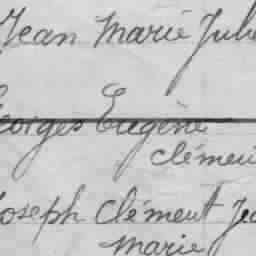 Jean Marie Jule
Georges Eugène
Clémen
Joseph Clément Jea
Marie